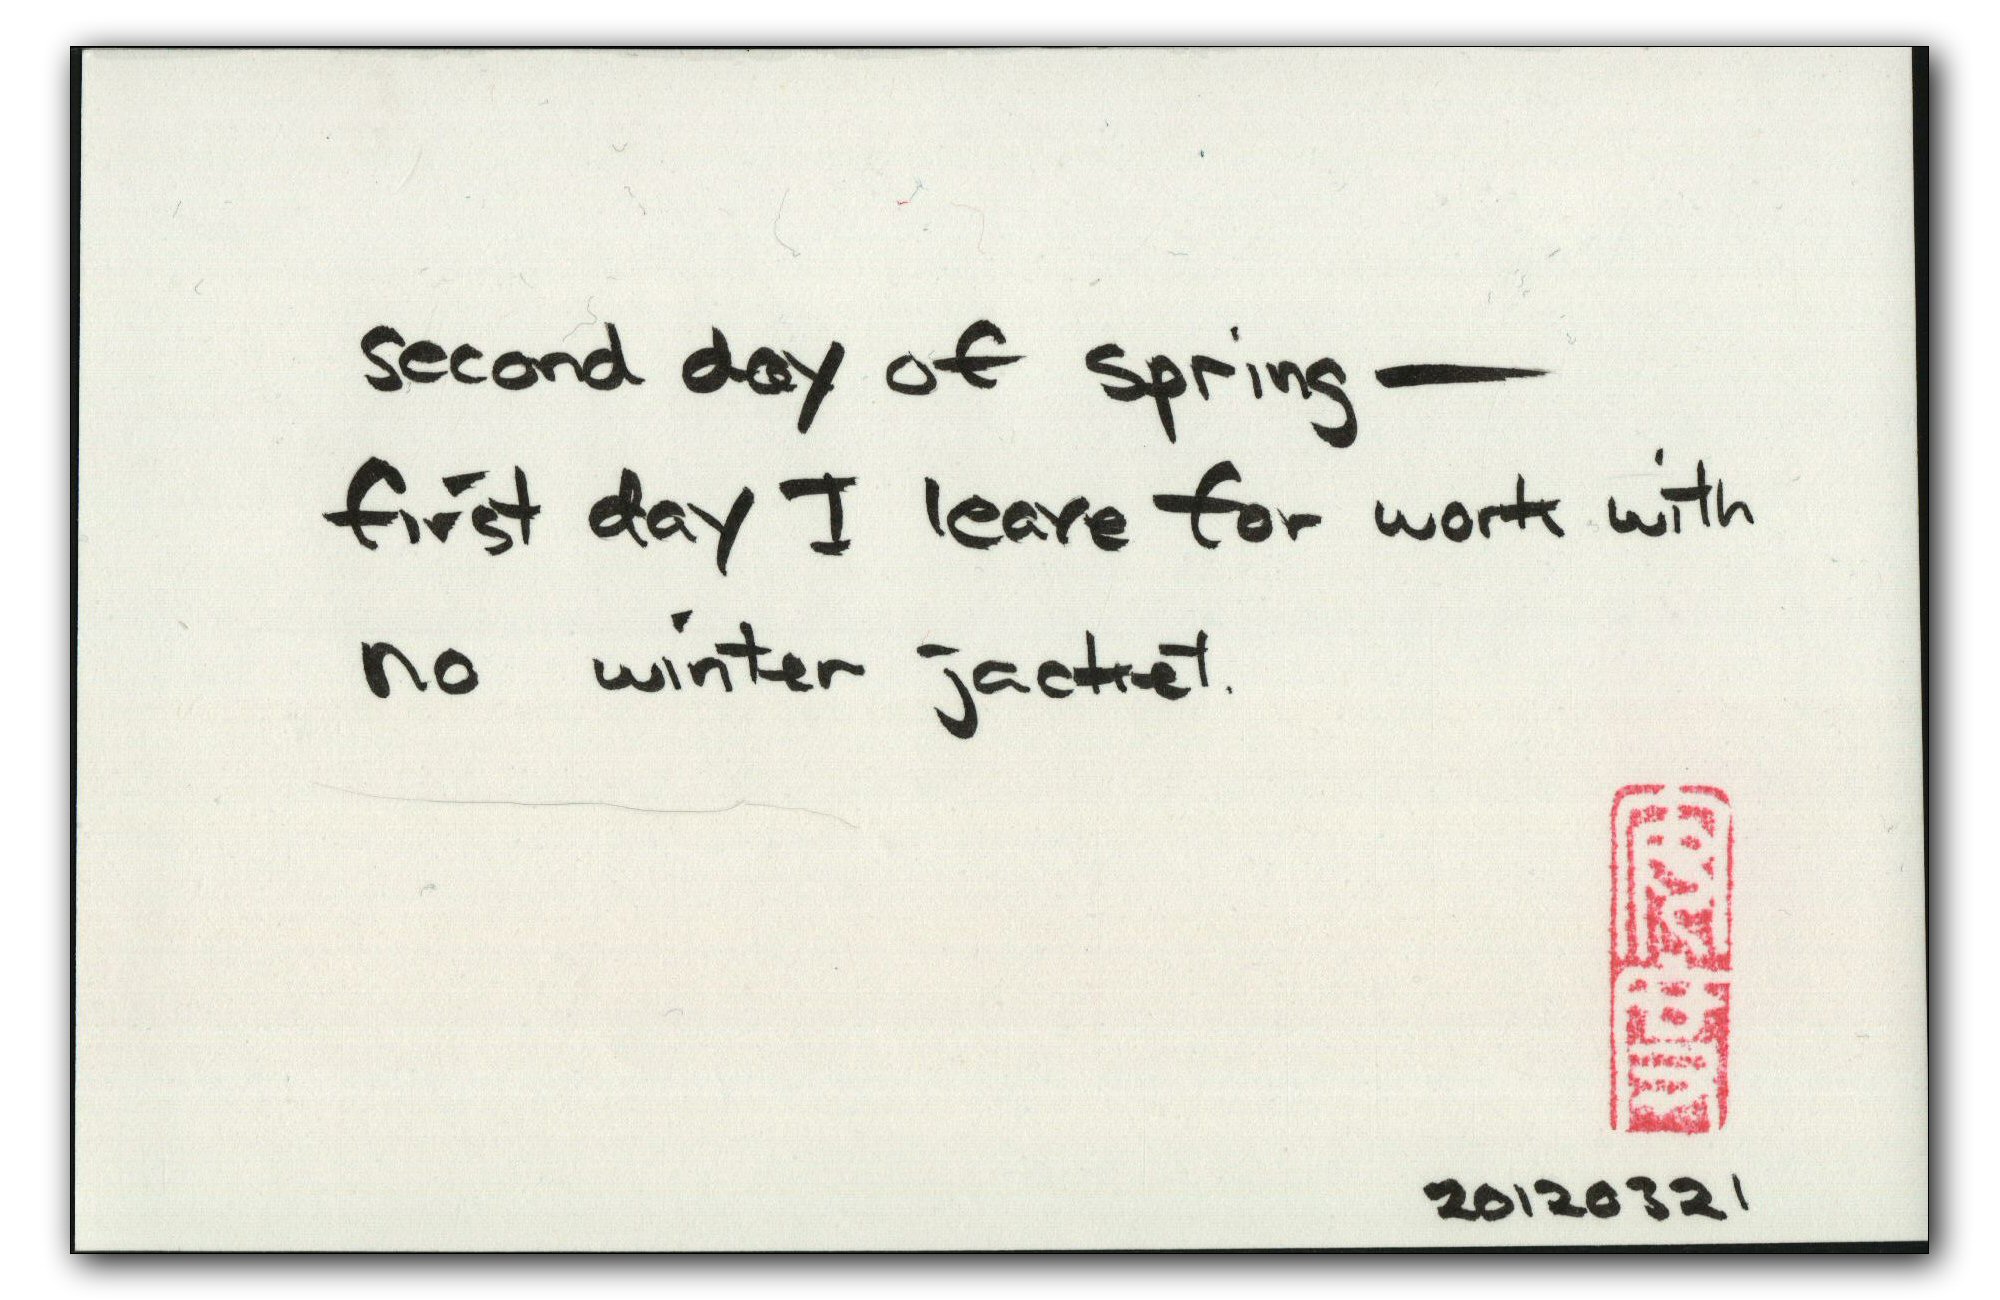 second day of spring—
first day I leave for work with
no winter jacket.
20120321